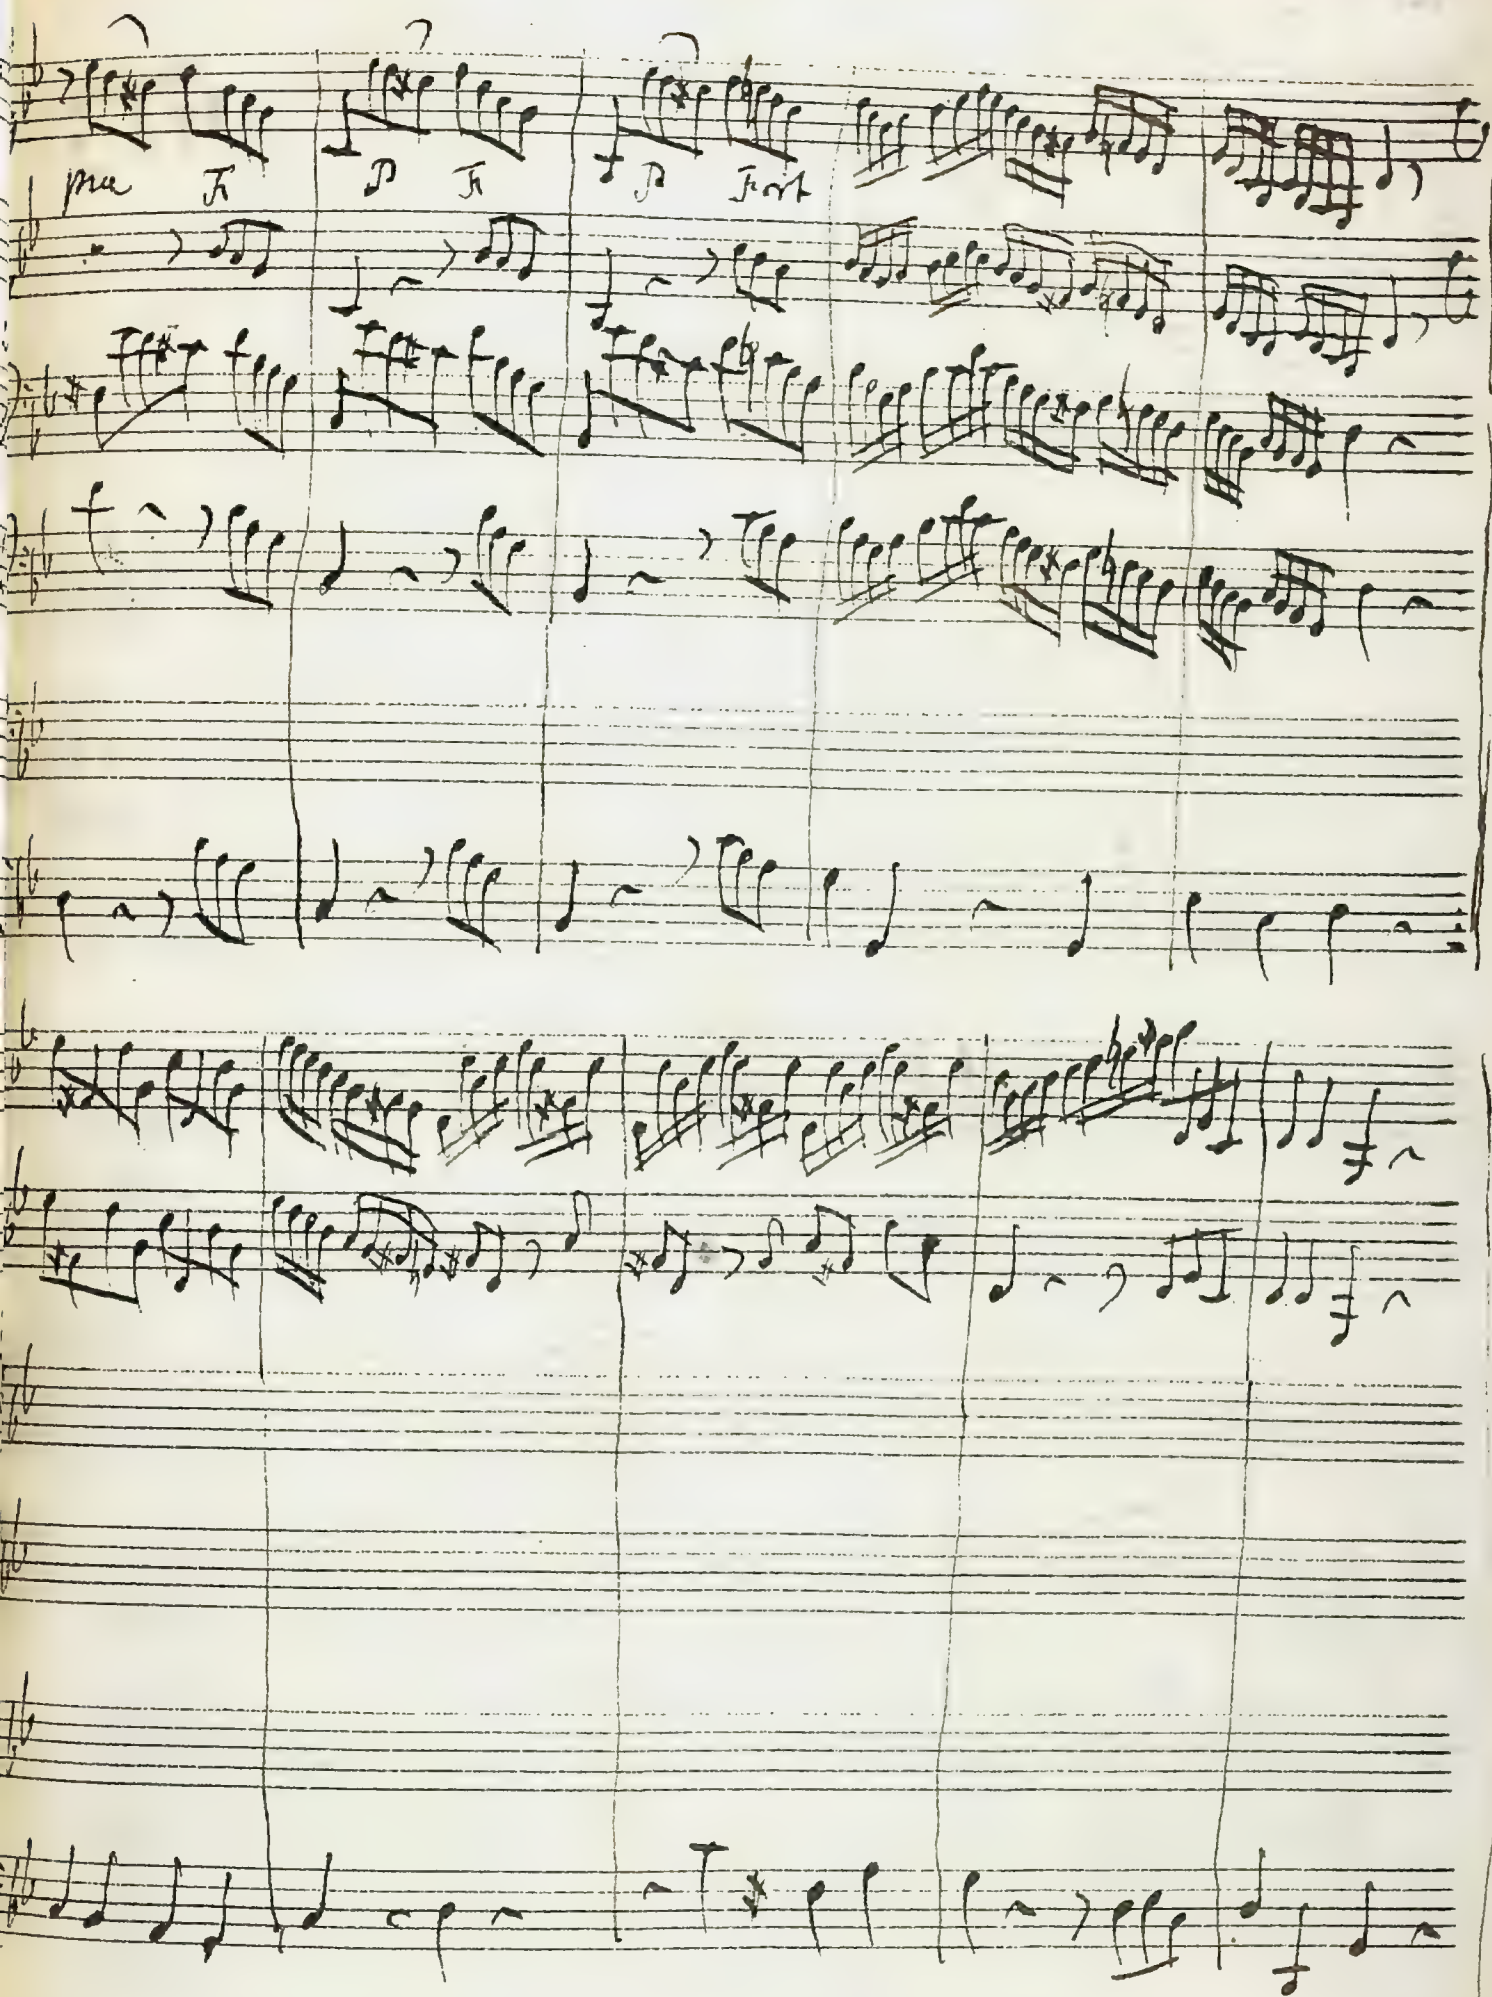 pia F P F P Fort